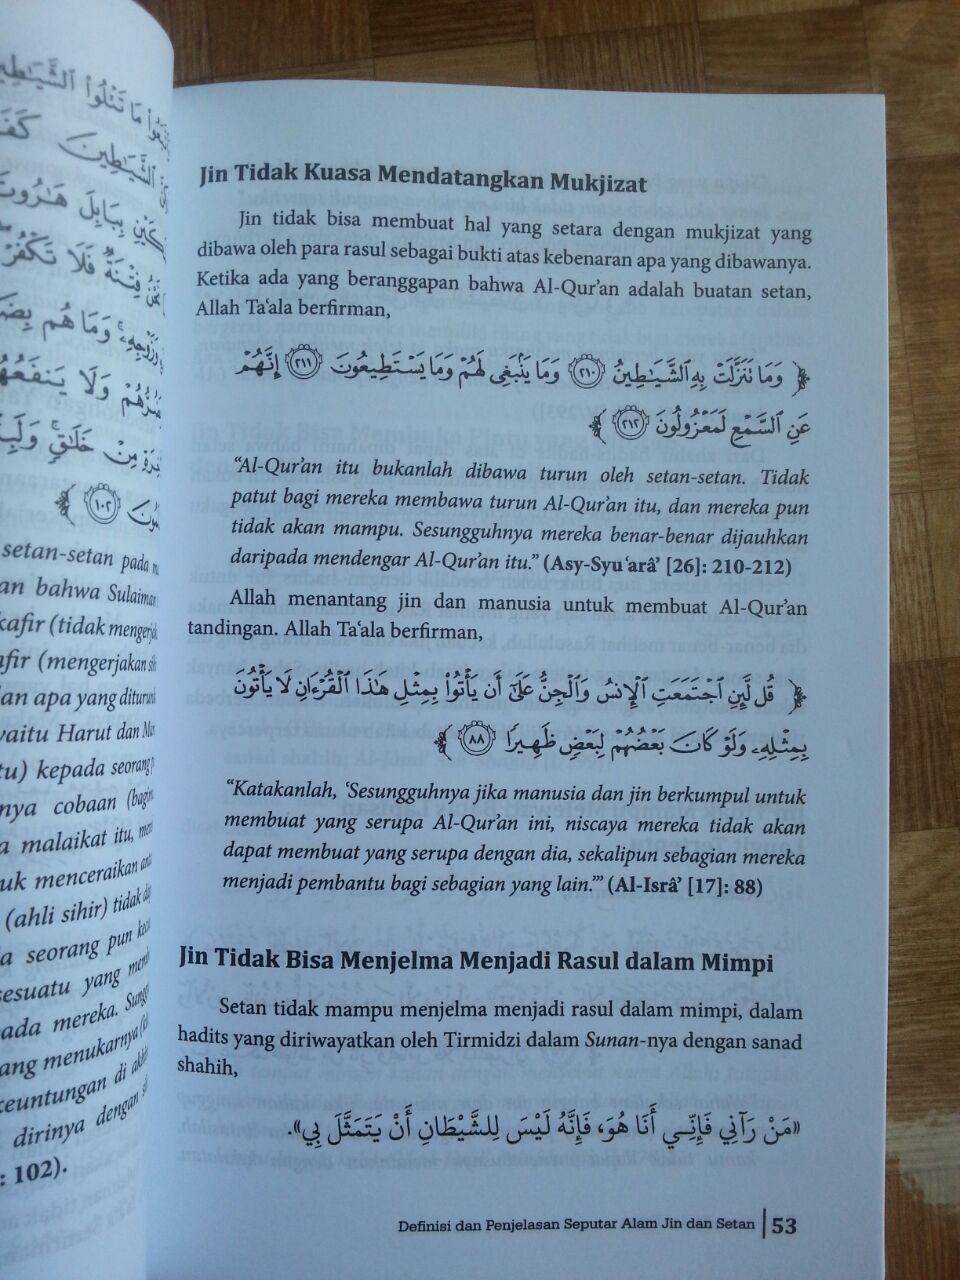 ما تتلوا
هاروت
فتنة فلا
وما هم
ولا
من خلاق
١٠٢
setan-setan pada
bahwa Sulaiman
kafir (tidak
(mengerjakan
apa yang
yaitu Harut dan
kepada seorang
cobaan
malaikat itu,
menceraikan
(ahli sihir) tidak
seorang pun
sesuatu yang
pada mereka.
menukarnya
keuntungan di
dirinya dengan
: 102).
Jin Tidak Kuasa Mendatangkan Mukjizat
Jin tidak bisa membuat hal yang setara dengan mukjizat yang
dibawa oleh para rasul sebagai bukti atas kebenaran apa yang dibawanya.
Ketika ada yang beranggapan bahwa Al-Qur’an adalah buatan setan,
Allah Ta‘ala berfirman,
﴿ وَمَا نَنَزَّلَتْ بِهِ ٱلشَّيَٰطِينُ ٢١٠ وَمَا يَنۢبَغِى لَهُمْ وَمَا يَسْتَطِيعُونَ ٢١١ إِنَّهُمْ
عَنِ ٱلسَّمْعِ لَمَعْزُولُونَ ٢١٢ ﴾
“Al-Qur’an itu bukanlah dibawa turun oleh setan-setan. Tidak
patut bagi mereka membawa turun Al-Qur’an itu, dan mereka pun
tidak akan mampu. Sesungguhnya mereka benar-benar dijauhkan
daripada mendengar Al-Qur’an itu.” (Asy-Syu‘arâ’ [26]: 210-212)
Allah menantang jin dan manusia untuk membuat Al-Qur’an
tandingan. Allah Ta‘ala berfirman,
﴿ قُل لَّئِنِ ٱجْتَمَعَتِ ٱلْإِنسُ وَٱلْجِنُّ عَلَىٰٓ أَن يَأْتُوا۟ بِمِثْلِ هَٰذَا ٱلْقُرْءَانِ لَا يَأْتُونَ
بِمِثْلِهِۦ وَلَوْ كَانَ بَعْضُهُمْ لِبَعْضٍ ظَهِيرًا ٨٨ ﴾
“Katakanlah, ‘Sesungguhnya jika manusia dan jin berkumpul untuk
membuat yang serupa Al-Qur’an ini, niscaya mereka tidak akan
dapat membuat yang serupa dengan dia, sekalipun sebagian mereka
menjadi pembantu bagi sebagian yang lain.’” (Al-Isrâ’ [17]: 88)
Jin Tidak Bisa Menjelma Menjadi Rasul dalam Mimpi
Setan tidak mampu menjelma menjadi rasul dalam mimpi, dalam
hadits yang diriwayatkan oleh Tirmidzi dalam Sunan-nya dengan sanad
shahih,
«مَنْ رَآنِي فَإِنِّي أَنَا هُوَ، فَإِنَّهُ لَيْسَ لِلشَّيْطَانِ أَنْ يَتَمَثَّلَ بِي».
Definisi dan Penjelasan Seputar Alam Jin dan Setan | 53